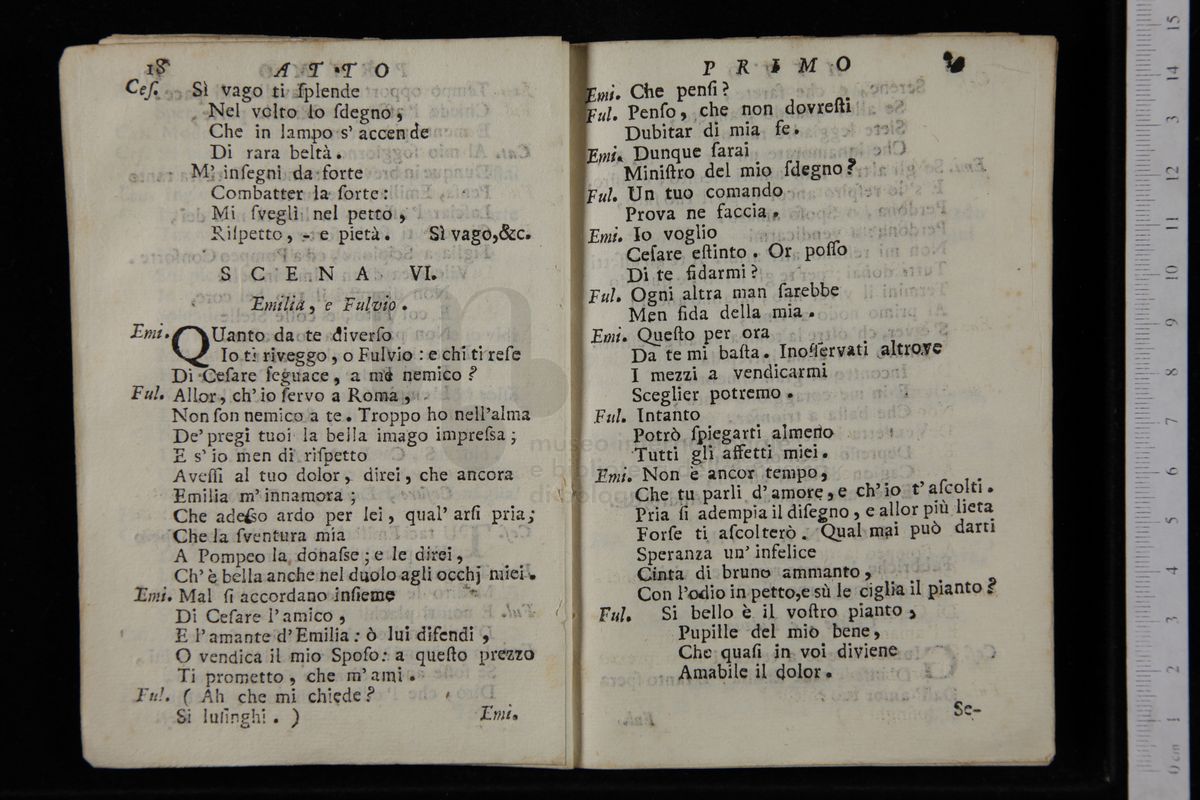 18
ATTO
Ceſ. Sì vago ti ſplende
Nel volto lo ſdegno,
Che in lampo s' accende
Di rara beltà.
M' inſegni da forte
Combatter la ſorte:
Mi ſvegli nel petto,
Riſpetto, - e pietà. Sì vago,&c.
SCENA VI.
Emilia, e Fulvio.
Emi. QUanto da te diverſo
Io ti riveggo, o Fulvio: e chi ti reſe
Di Ceſare ſeguace, a me nemico?
Ful. Allor, ch' io ſervo a Roma,
Non ſon nemico a te. Troppo ho nell'alma
De' pregi tuoi la bella imago impreſsa;
E s' io men di riſpetto
Aveſſi al tuo dolor, direi, che ancora
Emilia m' innamora;
Che adeſso ardo per lei, qual' arſi pria;
Che la ſventura mia
A Pompeo la donaſse; e le direi,
Ch' è bella anche nel duolo agli occhj miei.
Emi. Mal ſi accordano inſieme
Di Ceſare l' amico,
E l' amante d' Emilia: ò lui difendi,
O vendica il mio Spoſo: a queſto prezzo
Ti prometto, che m' ami.
Ful. ( Ah che mi chiede?
Si luſinghi. )
Emi.
PRIMO
Emi. Che penſi?
Ful. Penſo, che non dovreſti
Dubitar di mia fe.
Emi. Dunque ſarai
Miniſtro del mio ſdegno?
Ful. Un tuo comando
Prova ne faccia.
Emi. Io voglio
Ceſare eſtinto. Or poſſo
Di te fidarmi?
Ful. Ogni altra man ſarebbe
Men fida della mia.
Emi. Queſto per ora
Da te mi baſta. Inoſſervati altrove
I mezzi a vendicarmi
Sceglier potremo.
Ful. Intanto
Potrò ſpiegarti almeno
Tutti gli affetti miei.
Emi. Non è ancor tempo,
Che tu parli d' amore, e ch' io t' aſcolti.
Pria ſi adempia il diſegno, e allor più lieta
Forſe ti aſcolterò. Qual mai può darti
Speranza un' infelice
Cinta di bruno ammanto,
Con l'odio in petto,e sù le ciglia il pianto?
Ful. Si bello è il voſtro pianto,
Pupille del mio bene,
Che quaſi in voi diviene
Amabile il dolor.
Se-